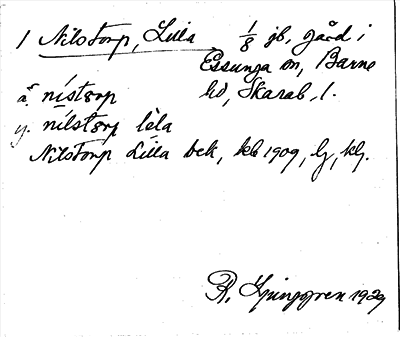 1 Nilstorp, Lilla 1/8 jb, gård i
Essunga sn, Barne
hd, Skarab. l.
ä. nístorp
y. nílstorp lèla
Nilstorp Lilla bek, kb 1909, lj, klj.
R. Ljunggren 1929